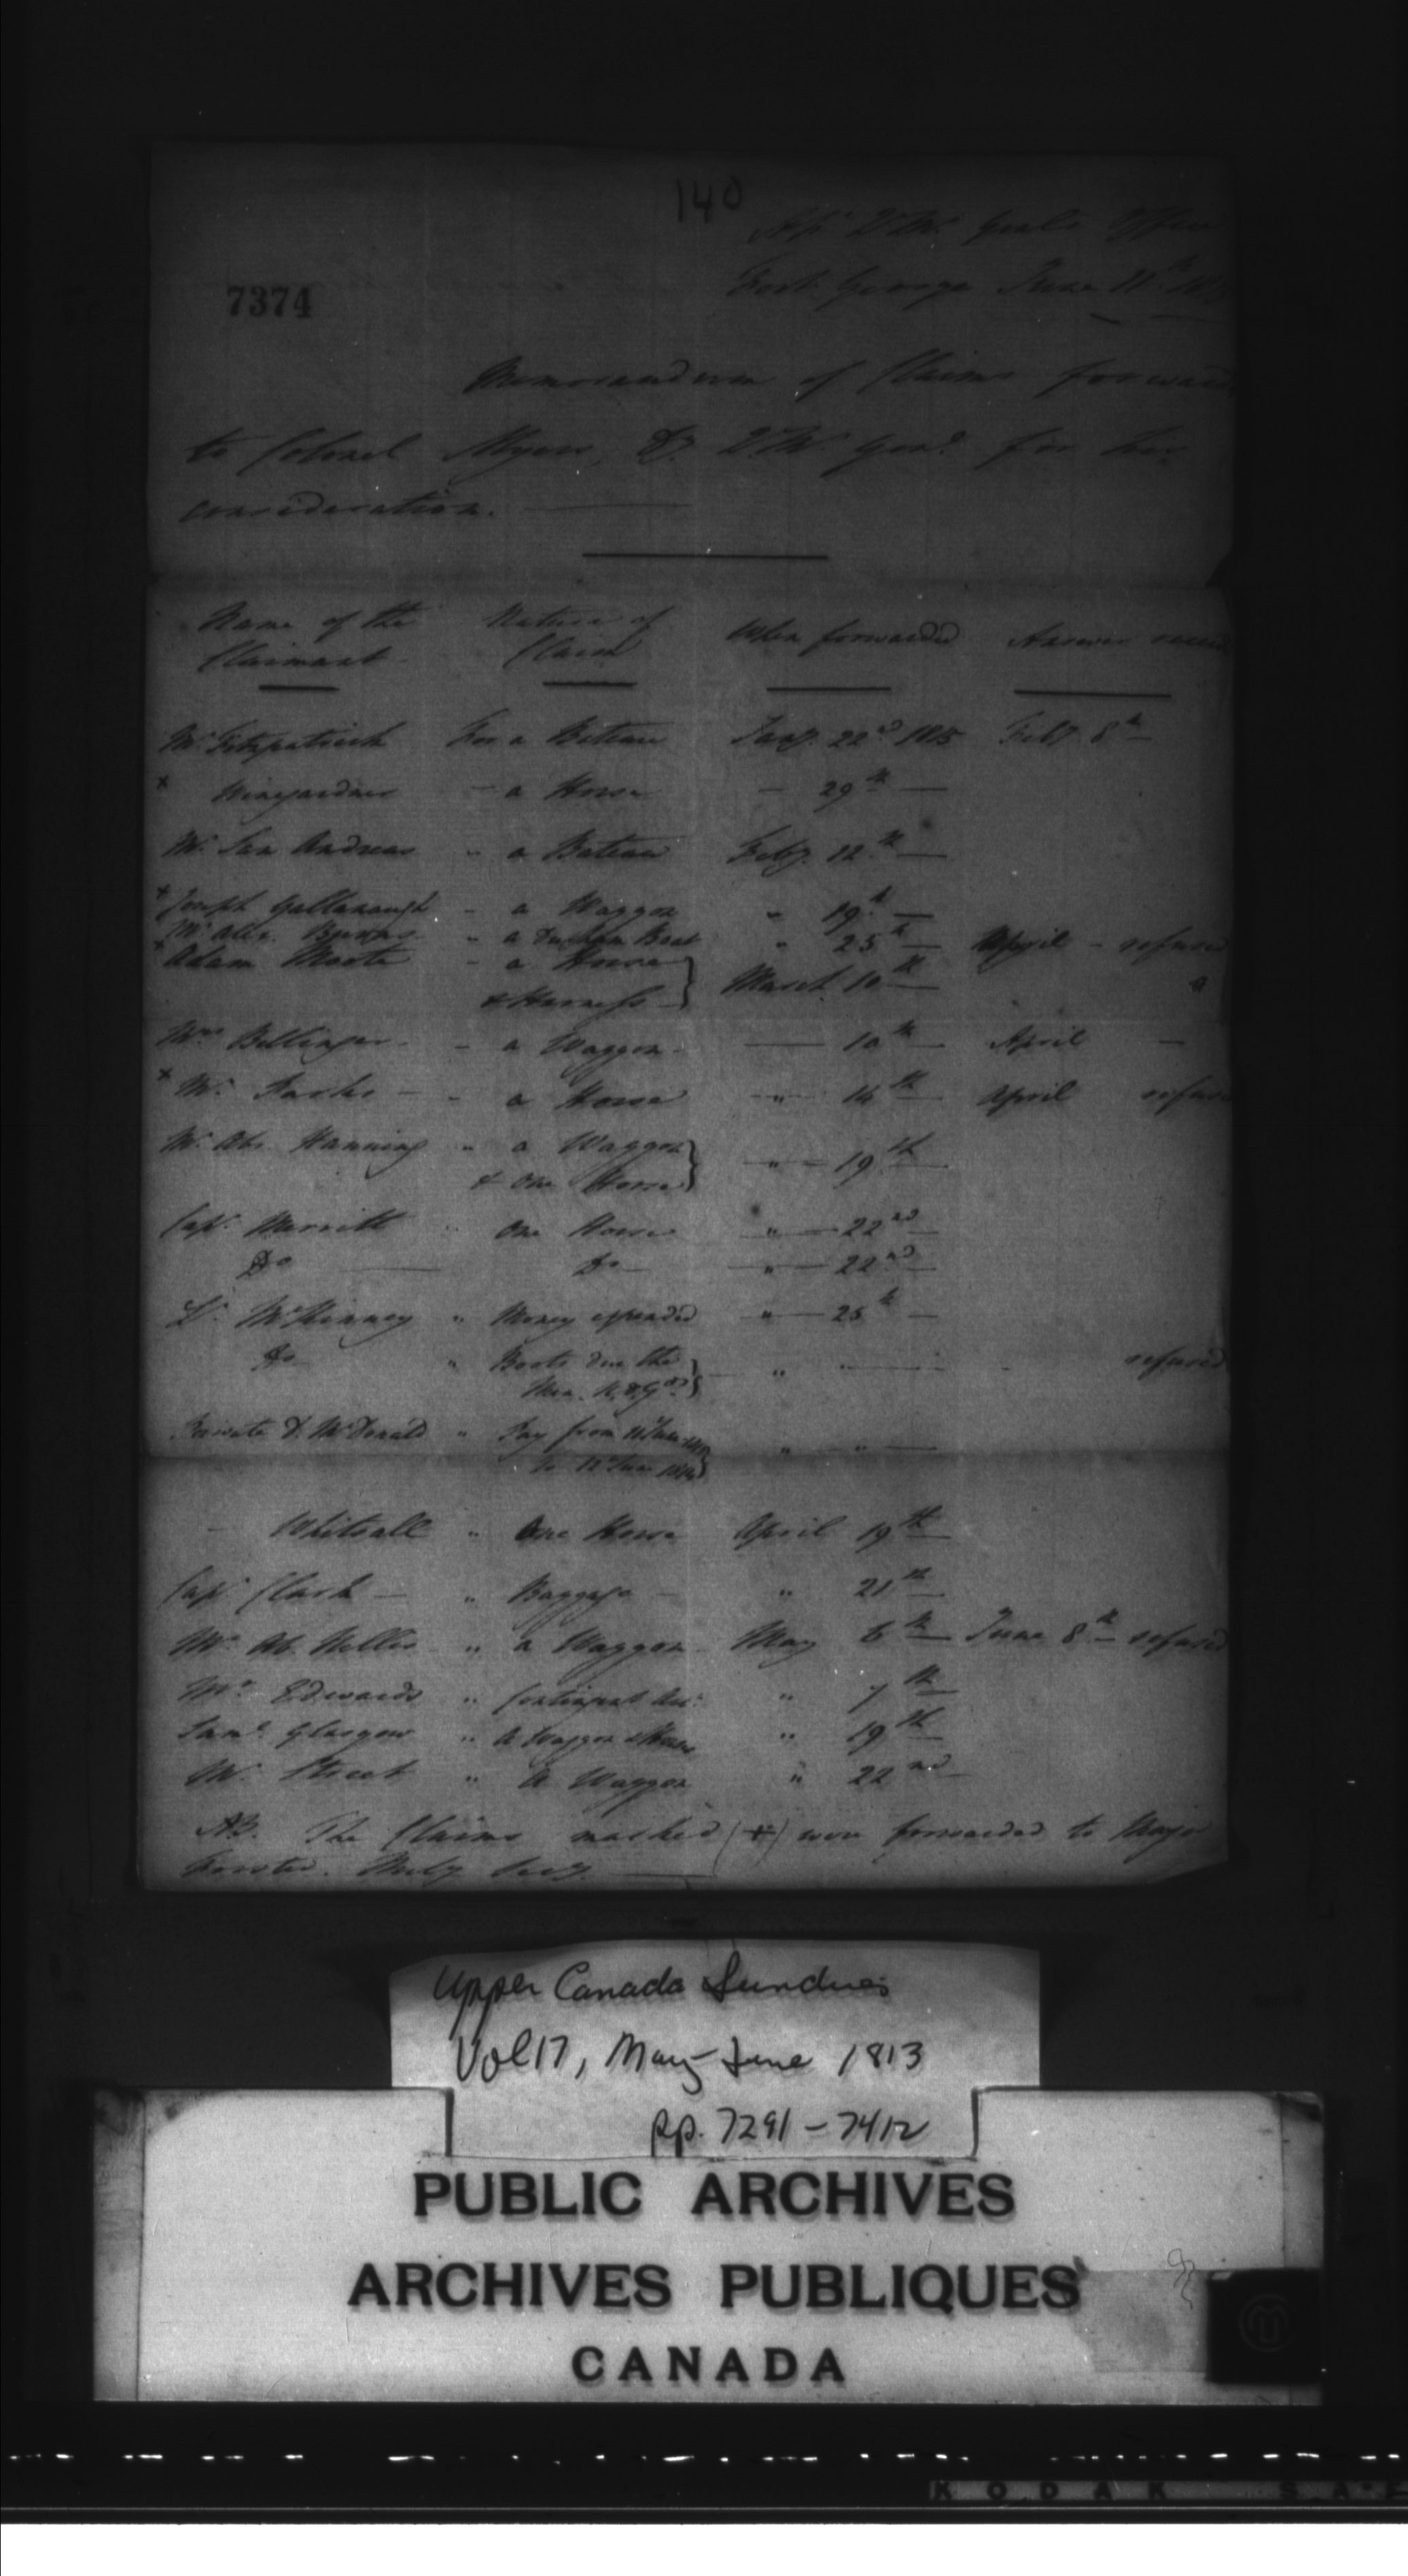 140
Qr. Mr. Genls Office
7374
Fort George June 11th
Memorandum of Claims forward
to Colonel Myers, D. Q. M Genl. for his
consideration.
Name of the Claimant Nature of Claim When forwarded Answer
Mr Fitzpatrick For a Bateau Jany. 22nd 1815 Feby 8th
x Wineyardner - a Horse - 29th
Mr. San Andreas " a Bateau Feby. 12th
x Joseph Gallanaugh - a Waggon " 19th
Mr Alex. Burns " a Durham Boat " 25th April - refused
x Adam Moote - a Horse
& Harness } March 10th
Bellinger - a Waggon 10th April -
x Mr. - a Horse " 14th April refused
Mr. Abr. Hanning " a Waggon
& one Horse } " 19th
Capt. Merritt " One Horse " 22nd
Do Do " 22nd
Lt. McKenney " Money expended " 25th
Do " Boots due the
Men } " " refused
Private D. McDonald " Pay from
to 12 June } " "
- Whitsall " One Horse April 19th
Capt Clark " Baggage " 21st
Mr. Ab. Nelles " a Waggon May 6th June 8th refused
Mr. Edwards " Contingent Acc. " 7th
Saml. Glasgow " a Waggon & Horse " 19th
Mr. Street " a Waggon " 22nd
NB. The Claims marked (x) were forwarded to Major
Upper Canada Sundries
Vol 17, May-June 1813
pp. 7291-7412
PUBLIC ARCHIVES
ARCHIVES PUBLIQUES
CANADA
KODAK SA